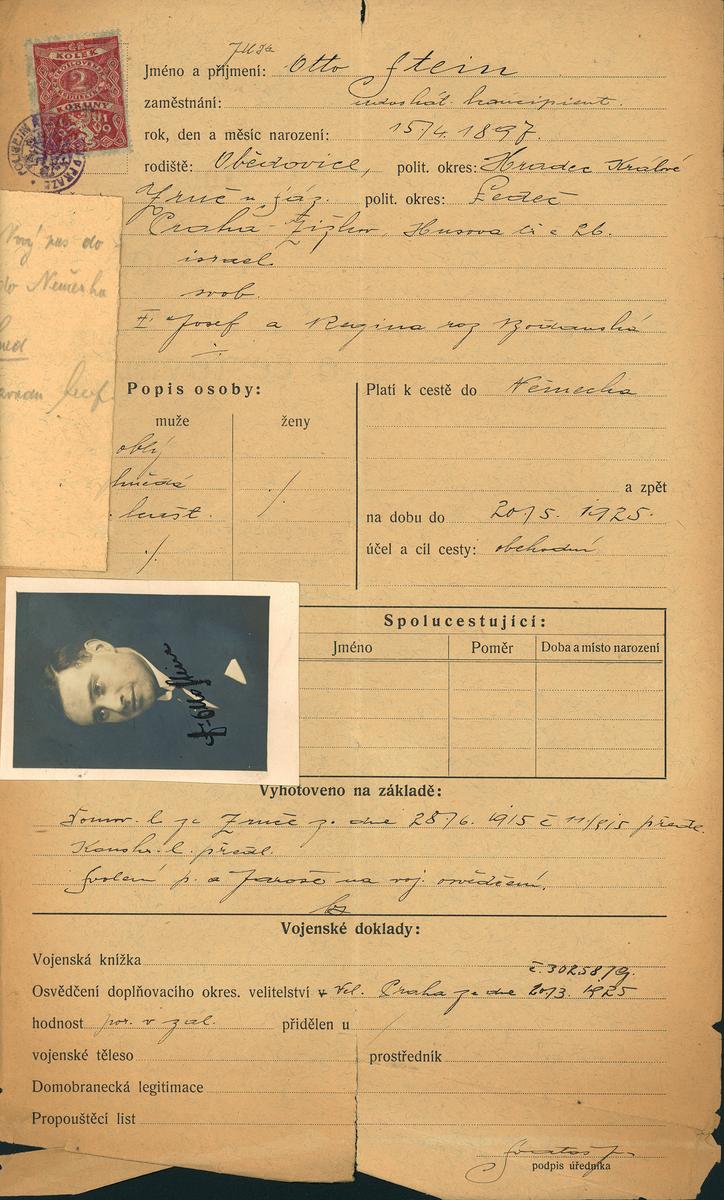 KOLEK
2
KORUNY
JUDr
Jméno a příjmení: Otto Stein
zaměstnání: koncipient.
rok, den a měsíc narození: 15/4. 1897.
rodiště: Obědovice, polit. okres: Hradec Králové
Zruč n. Sáz. polit. okres: Ledeč
Praha-Žižkov, Husova tř. č 26.
israel.
svob.
Josef a Regina roz
Nový pas do
do Německa
Popis osoby:
muže ženy
oblý
hnědé
Platí k cestě do Německa
a zpět
na dobu do 20/5. 1925.
účel a cíl cesty: obchodní
Spolucestující:
Jméno Poměr Doba a místo narození
Otto Stein
Vyhotoveno na základě:
Domov. l. ze Zruče ze dne 28/6. 1915 č 11/915 předl.
l. předl.
Svolení p. na voj. osvědčení.
Vojenské doklady:
Vojenská knížka
č. 30258/g.
Osvědčení doplňovacího okres. velitelství v Vel. Praha ze dne 20/3. 1925
hodnost por. v zál. přidělen u
vojenské těleso prostředník
Domobranecká legitimace
Propouštěcí list
podpis úředníka